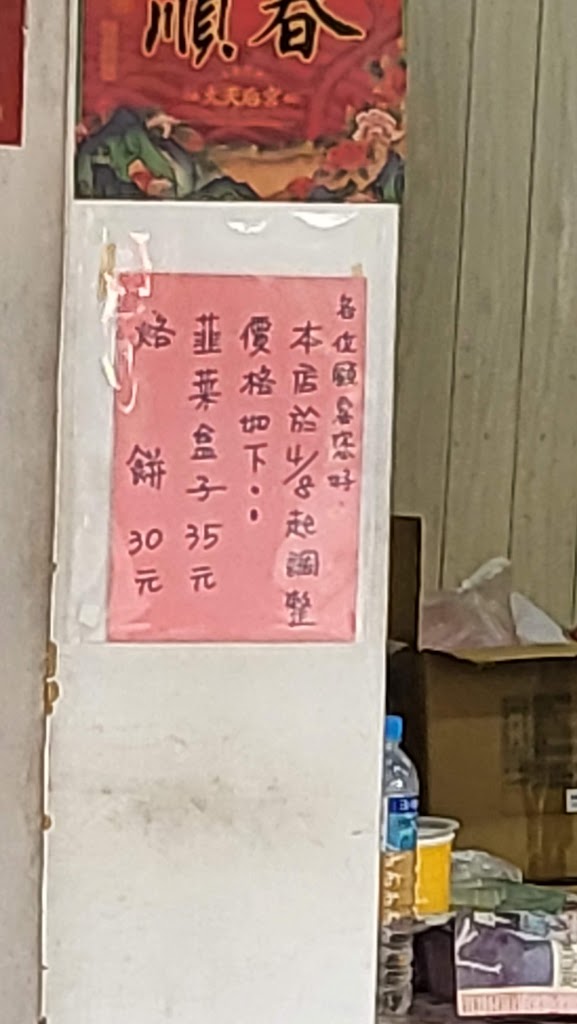 順春
大天后宮
各位顧客您好.
本店於4/8起調整
價格如下：
韮菜盒子35元
烙餅30元